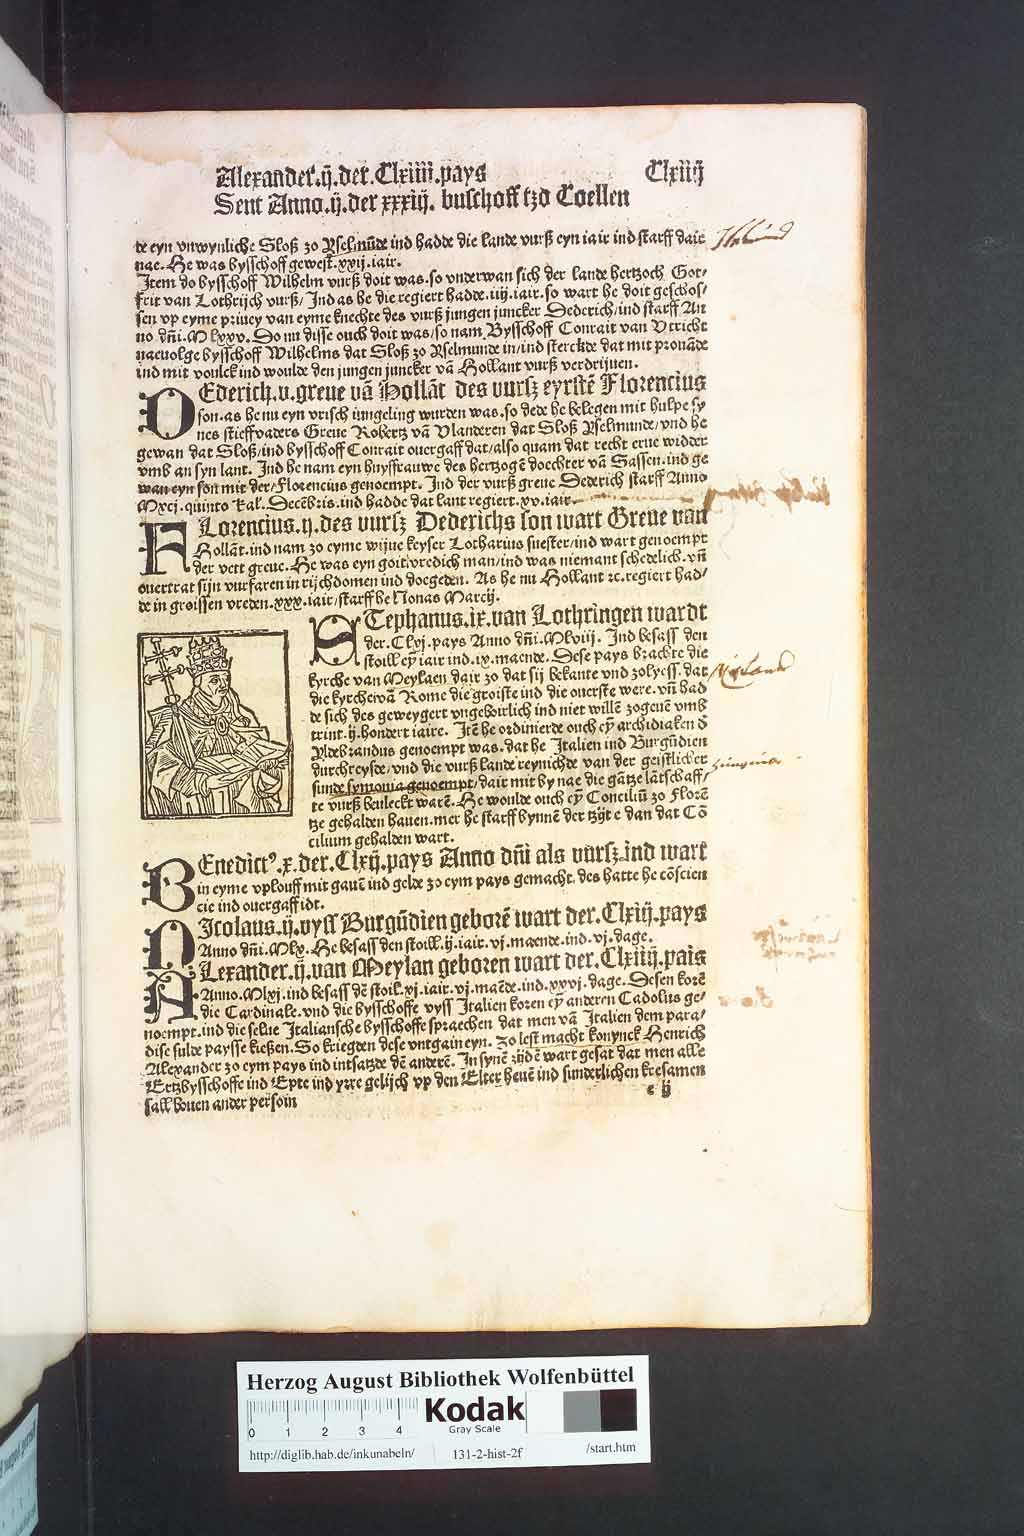 Alexander.ij.der.Clxiiii.pays Clxiiij
Sent Anno.ij.der xxxiij. buschoff tzo Coellen
de eyn vnwynliche Sloß zo Yselmūde ind hadde die lande vurß eyn iair ind starff dair
nae. He was bysschoff gewest.xxij.iair.
Item do bysschoff Wilhelm vurß doit was.so vnderwan sich der lande hertzoch Got/
frit van Lothrijch vurß/ Ind as he die regiert hadde.iiij.iair.so wart he doit geschos/
sen vp eyme priuey van eyme knechte des vurß jungen juncker Dederich/ind starff An
no dn̄i.Mlxxv. Do nu disse ouch doit was/so nam Bysschoff Conrait van Vtricht
naeuolge bysschoff Wilhelms dat Sloß zo Yselmunde in/ind sterckde dat mit prouāde
ind mit voulck ind woulde den jungen juncker vā Hollant vurß verdrijuen.
DEderich.v.greue vā Hollāt des vursz eyrstē Florencius
son.as he nu eyn vrisch iungeling wurden was.so dede he belegen mit hulpe sy
nes stieffvaders Greue Robertz vā Vlanderen dat Sloß Yselmunde/vnd he
gewan dat Sloß/ind bysschoff Conrait ouergaff dat/also quam dat recht erue widder
vmb an syn lant. Ind he nam eyn huyffrauwe des hertzogē doechter vā Sassen.ind ge
wan eyn son mit der/Florencius genoempt. Ind der vurß greue Dederich starff Anno
Mxcj.quinto kal.Decēbris.ind hadde dat lant regiert.xv.iair.
FLorencius.ij.des vursz Dederichs son wart Greue van
Hollāt.ind nam zo eyme wijue keyser Lotharius suester/ind wart genoempt
der vett greue. He was eyn goit/vredich man/ind was niemant schedelich.vn̄
ouertrat sijn vurfaren in rijchdomen ind doegeden. As he nu Hollant ꝛc.regiert had/
de in groissen vreden.xxx.iair/starff he Nonas Marcij.
STephanus.ix.van Lothringen wardt
der.Clxj.pays Anno dn̄i.Mlviij. Ind besass den
stoill eȳ iair ind.ix.maende. Dese pays brachte die
kyrche van Meylaen dair zo dat sij bekante vnd zolyess.dat
die kyrche vā Rome die groiste ind die ouerste were.vn̄ had
de sich des geweygert vngeboirlich ind niet willē zogeuē vmb
trint.ij.hondert iaire. Itē he ordinierde ouch eȳ archidiaken d̄
Yldebrandus genoempt was.dat he Italien ind Burgūdien
durchreysde/vnd die vurß lande reynichde van der geistlicher
sunde symonia genoempt/dair mit by nae die gātze lātschaff/
te vurß beuleckt warē. He woulde ouch eȳ Conciliū zo Florē
tze gehalden hauen.mer he starff bynnē der tzijt e dan dat Cō
cilium gehalden wart.
BEnedictꝰ.x.der.Clxij.pays Anno dn̄i als vursz.ind wart
in eyme vplouff mit gauē ind gelde zo eym pays gemacht.des hatte he cōscien
cie ind ouergaff idt.
NIcolaus.ij.vyss Burgūdien geborē wart der.Clxiij.pays
Anno dn̄i.Mlx. He besass den stoill.ij.iair.vj.maende.ind.vj.dage.
ALexander.ij.van Meylan geboren wart der.Clxiiij.pais
Anno.Mlxj.ind besass dē stoil.xj.iair.vj.maēde.ind.xxvj.dage. Desen korē
die Cardinale.vnd die bysschoffe vyss Italien koren eȳ anderen Cadolus ge/
noempt.ind die selue Italiansche bysschoffe spraechen dat men vā Italien dem para/
dise sulde paysse kießen. So kriegden dese vntgain eyn. Zo lest macht konynck Henrich
Alexander zo eym pays ind intsatzde dē anderē. In synē zijdē wart gesat dat men alle
Ertzbysschoffe ind Epte ind yrre gelijch vp den Elter heuē ind sunderlichen kresamen
sall bouen ander persoin
e ij
Herzog August Bibliothek Wolfenbüttel
0 1 2 3 4
Kodak
Gray Scale
http://diglib.hab.de/inkunabeln/ 131-2-hist-2f /start.htm